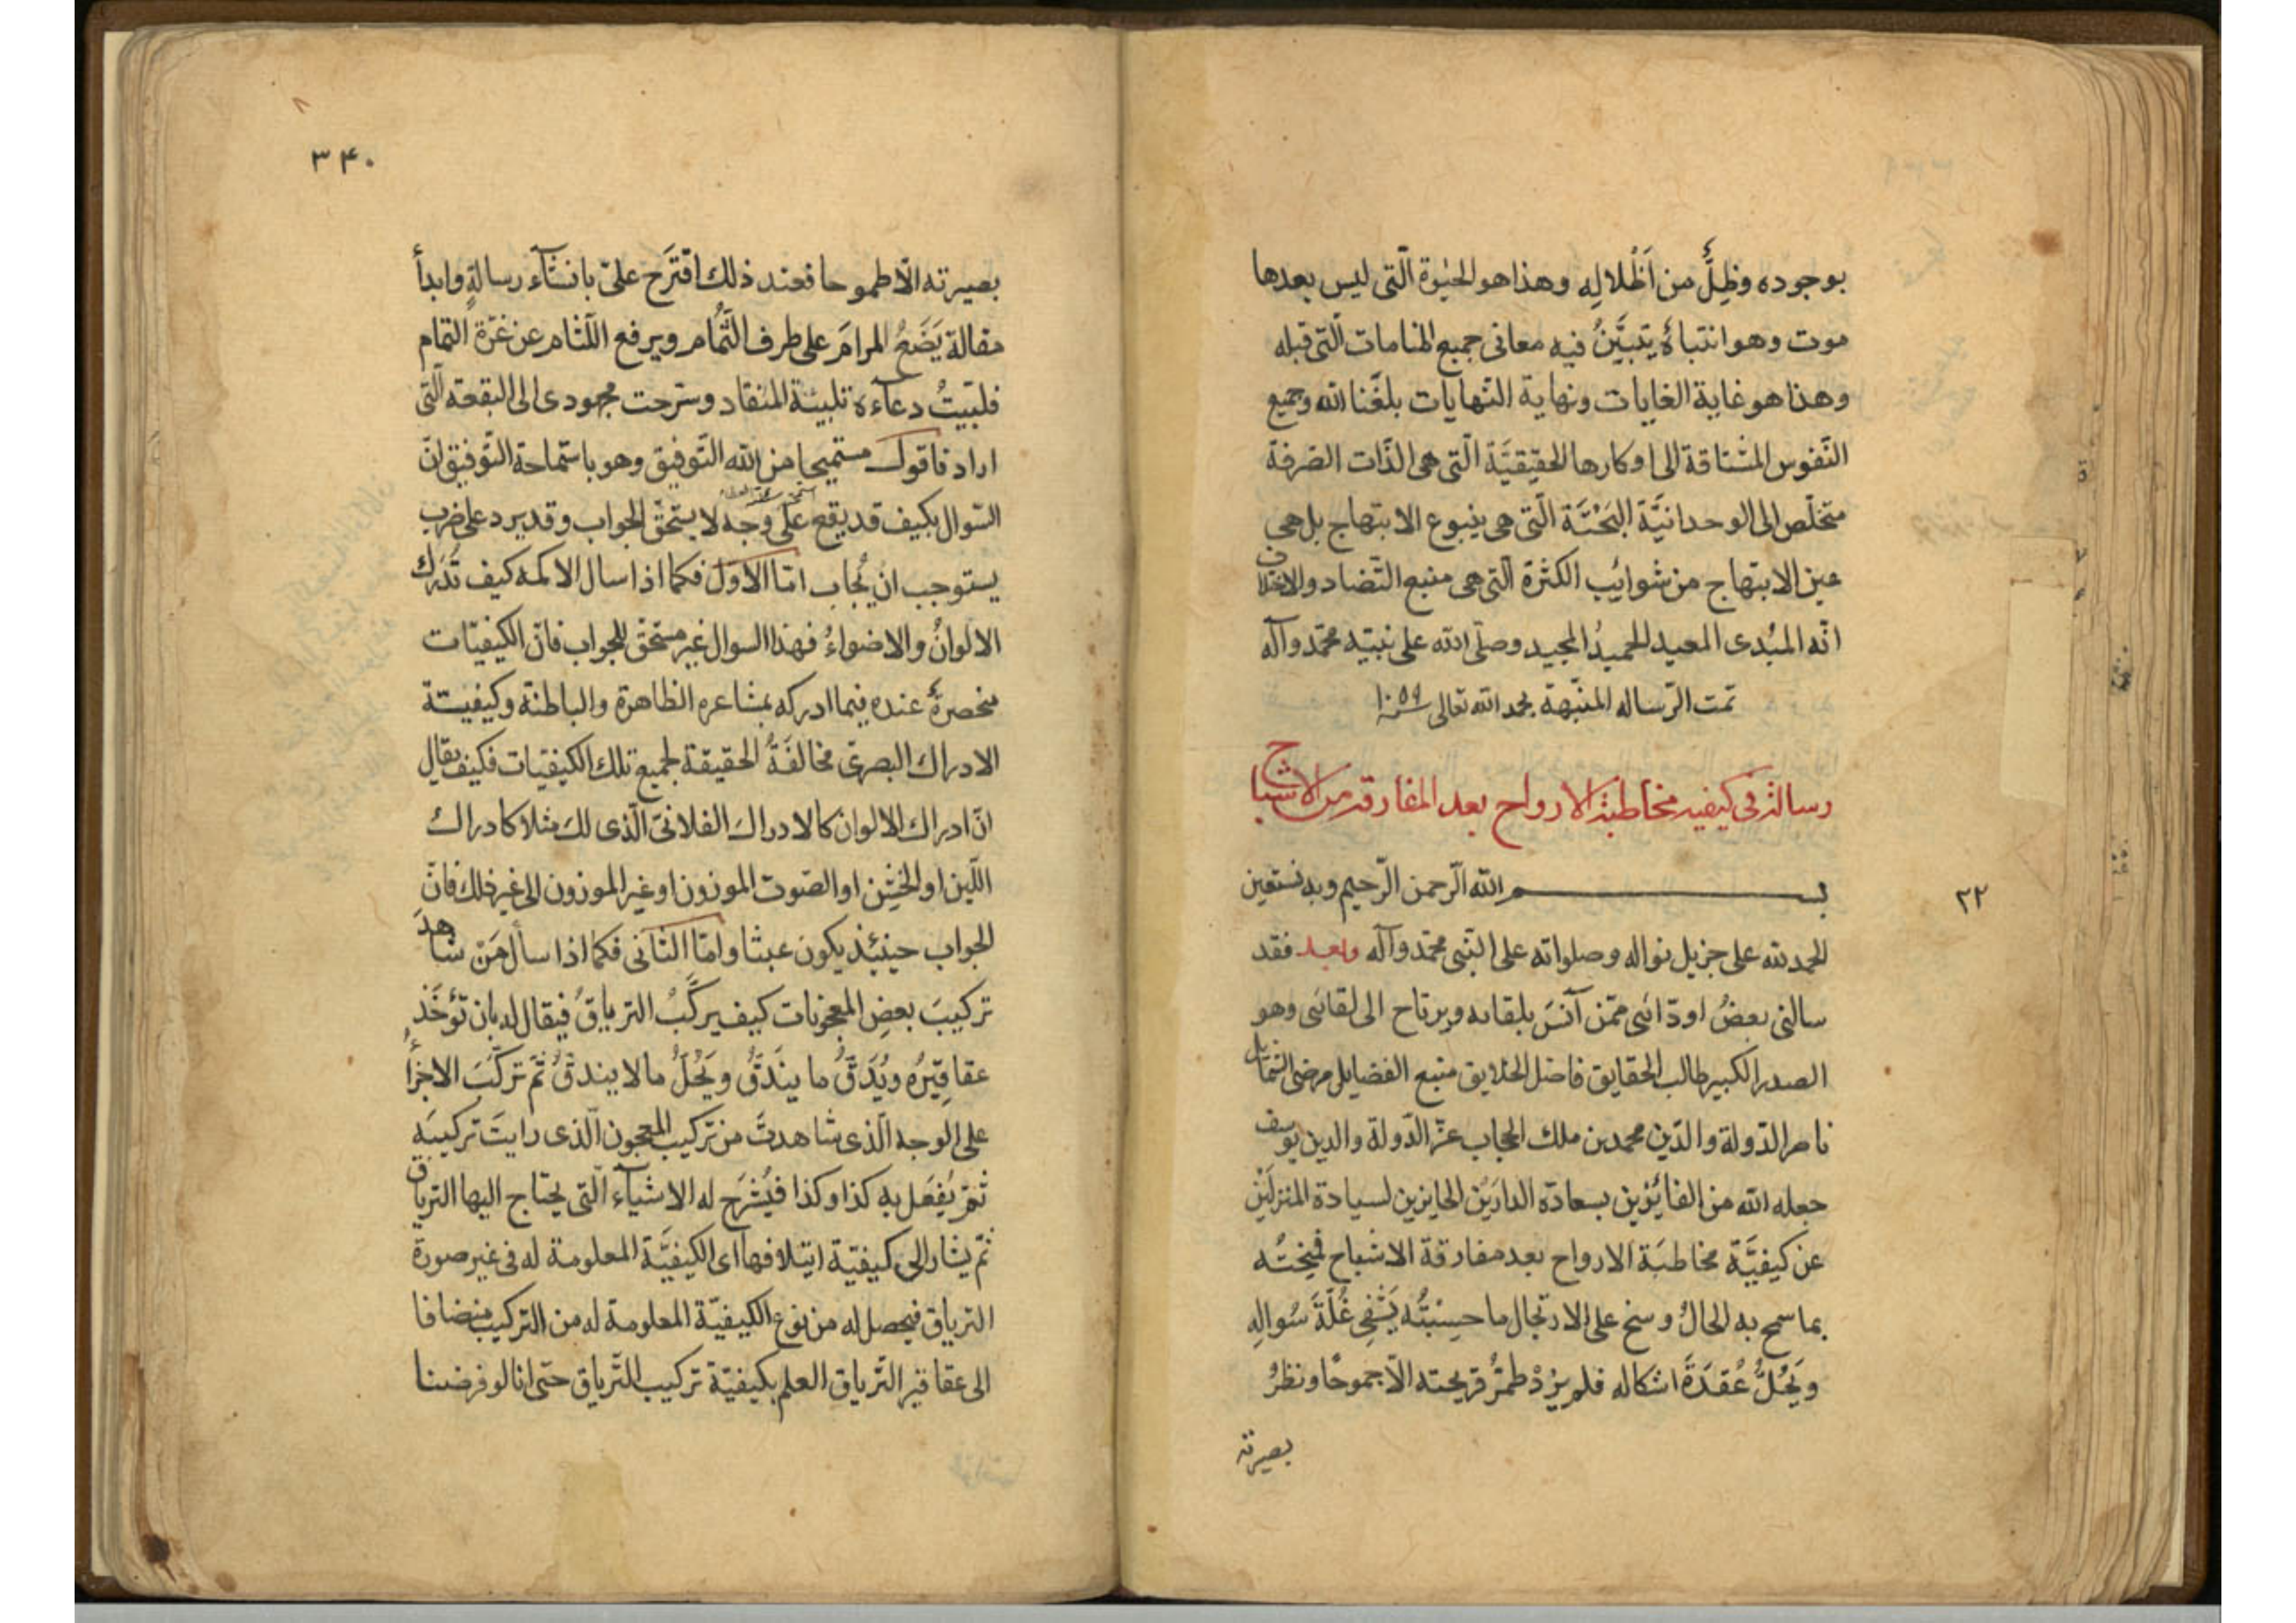 بوجوده وظِلٌّ من اَظْلالِهِ وهذا هو الحيٰوة الّتى ليس بعدها
موت وهو انتباهٌ يتبيَّنُ فيه معانى جميع المنامات الّتى قبله
وهذا هو غاية الغايات ونهاية النّهايات بلغّنا الله وجميع
النّفوس المشتاقة الى اوكارها الحقيقيَّة الّتى هى الذّات الصّرفة
متخلّص الى الوحدانيَّة البَحْتَّة الّتى هى ينبوع الابتهاج بل هى
عين الابتهاج من شوائِب الكثرة الّتى هى منبع التّضاد والاختلاف
انّه المبُدى المعيد الحميدُ المجيد وصلّى الله على نبيّه محمّد وآله
تمت الرّساله المنبّهة بحمد الله تعالى سنه ١٠٥٩
رسالة فى كيفيه مخاطبة الارواح بعد المفارقه من الاشباح
٢٢
بسم الله الرّحمن الرّحيم وبه نستعين
الحمد لله على جزيل نواله وصلواته على النّبى محمّد وآله وبعد فقد
سالنى بعضُ اودّائى ممّن آنسَ بلقائه ويرتاح الى لقائى وهو
الصدر الكبير طالب الحقايق فاضل الخلايق منبع الفضايل مرضى الشمايل
ناصر الدّولة والدّين محمد بن ملك الحجاب عزّ الدّولة والدين يوسف
جعله الله من الفائِزين بسعادة الدارَيْن الحايزين لسيادة المنزلَيْن
عن كيفيَّة مخاطبَة الارواح بعد مفارقة الاشباح
بما سمح به الحالُ وسنح على الارتجال ما حسِبْتُه يَشْفِى غُلَّةَ سُوالِهِ
ويَحُلُّ عُقدَةَ اشكاله فلم يزُدْ طمرُّ قريحته الّا جموحًا ونظرُ
بصيرته
٣۴٠
بصيرته الّا طموحا فعند ذلك اقتَرَح علىّ بانشآء رسالةٍ وابدأ
مقالة يَضَعُ المرامَ على طرف الثُّمام ويرفع اللّثام عن غرّة التمام
فلبّيتُ دعآءه تلبيَة المنقاد وسرّحت مجهودى الى البقعة الّتى
اراد فاقول مستميحا من الله التّوفيق وهو باستماحة التّوفيق انّ
السّوال بكيف قد يقع على وجه لا يستحقّ الجواب وقد يرد على ضرب
يستوجب انْ يُجاب امّا الاوّل فكما اذا سال الاكمه كيف تُدْرَك
الالوانُ والاضواءُ فهذا السوال غير مستحقّ للجواب فانّ الكيفيّات
منحصرةٌ عنده فيما ادركه بمشاعره الظاهرة والباطنة وكيفيّة
الادراك البصرىّ مخالفَةُ الحقيقة لجميع تلك الكيفيّات فكيف يقال
انّ ادراك الالوان كالادراك الفلانىّ الّذى لك مثلا كادراك
اللّين او الخشِن او الصّوت الموزون او غير الموزون الى غير ذلك فانّ
الجواب حينئِذ يكون عبثا وامّا الثّانى فكما اذا سأل مَنْ شاهدَ
تركيبَ بعضِ المعجونات كيف يركّبُ الترياقُ فيقال له بان تؤخَذ
عقاقيرُه ويُدَقُّ ما يندَقُّ ويَحُلُّ مالا يندقُّ ثمّ تركّبَ الاجزاُ
على الوجه الّذى شاهدتَّ من تركيب المعجون الّذى رايتَ تركيبَه
ثمّ يُفعَل به كذا وكذا فيُشرَح له الاشيآء الّتى يحتاج اليها الترياق
ثمّ يشار الى كيفيّة ايتلافها اى الكيفيَّة المعلومة له فى غير صورة
الترياق فيحصل له من نوع الكيفيّة المعلومة له من التركيب منضافا
الى عقاقير التّرياق العلم بكيفيّة تركيب التّرياق حتّى انا لو فرضنا